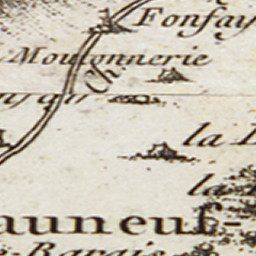 Fonfay
Moutonnerie
Ch.
la
la
auneuf-
e-Barais